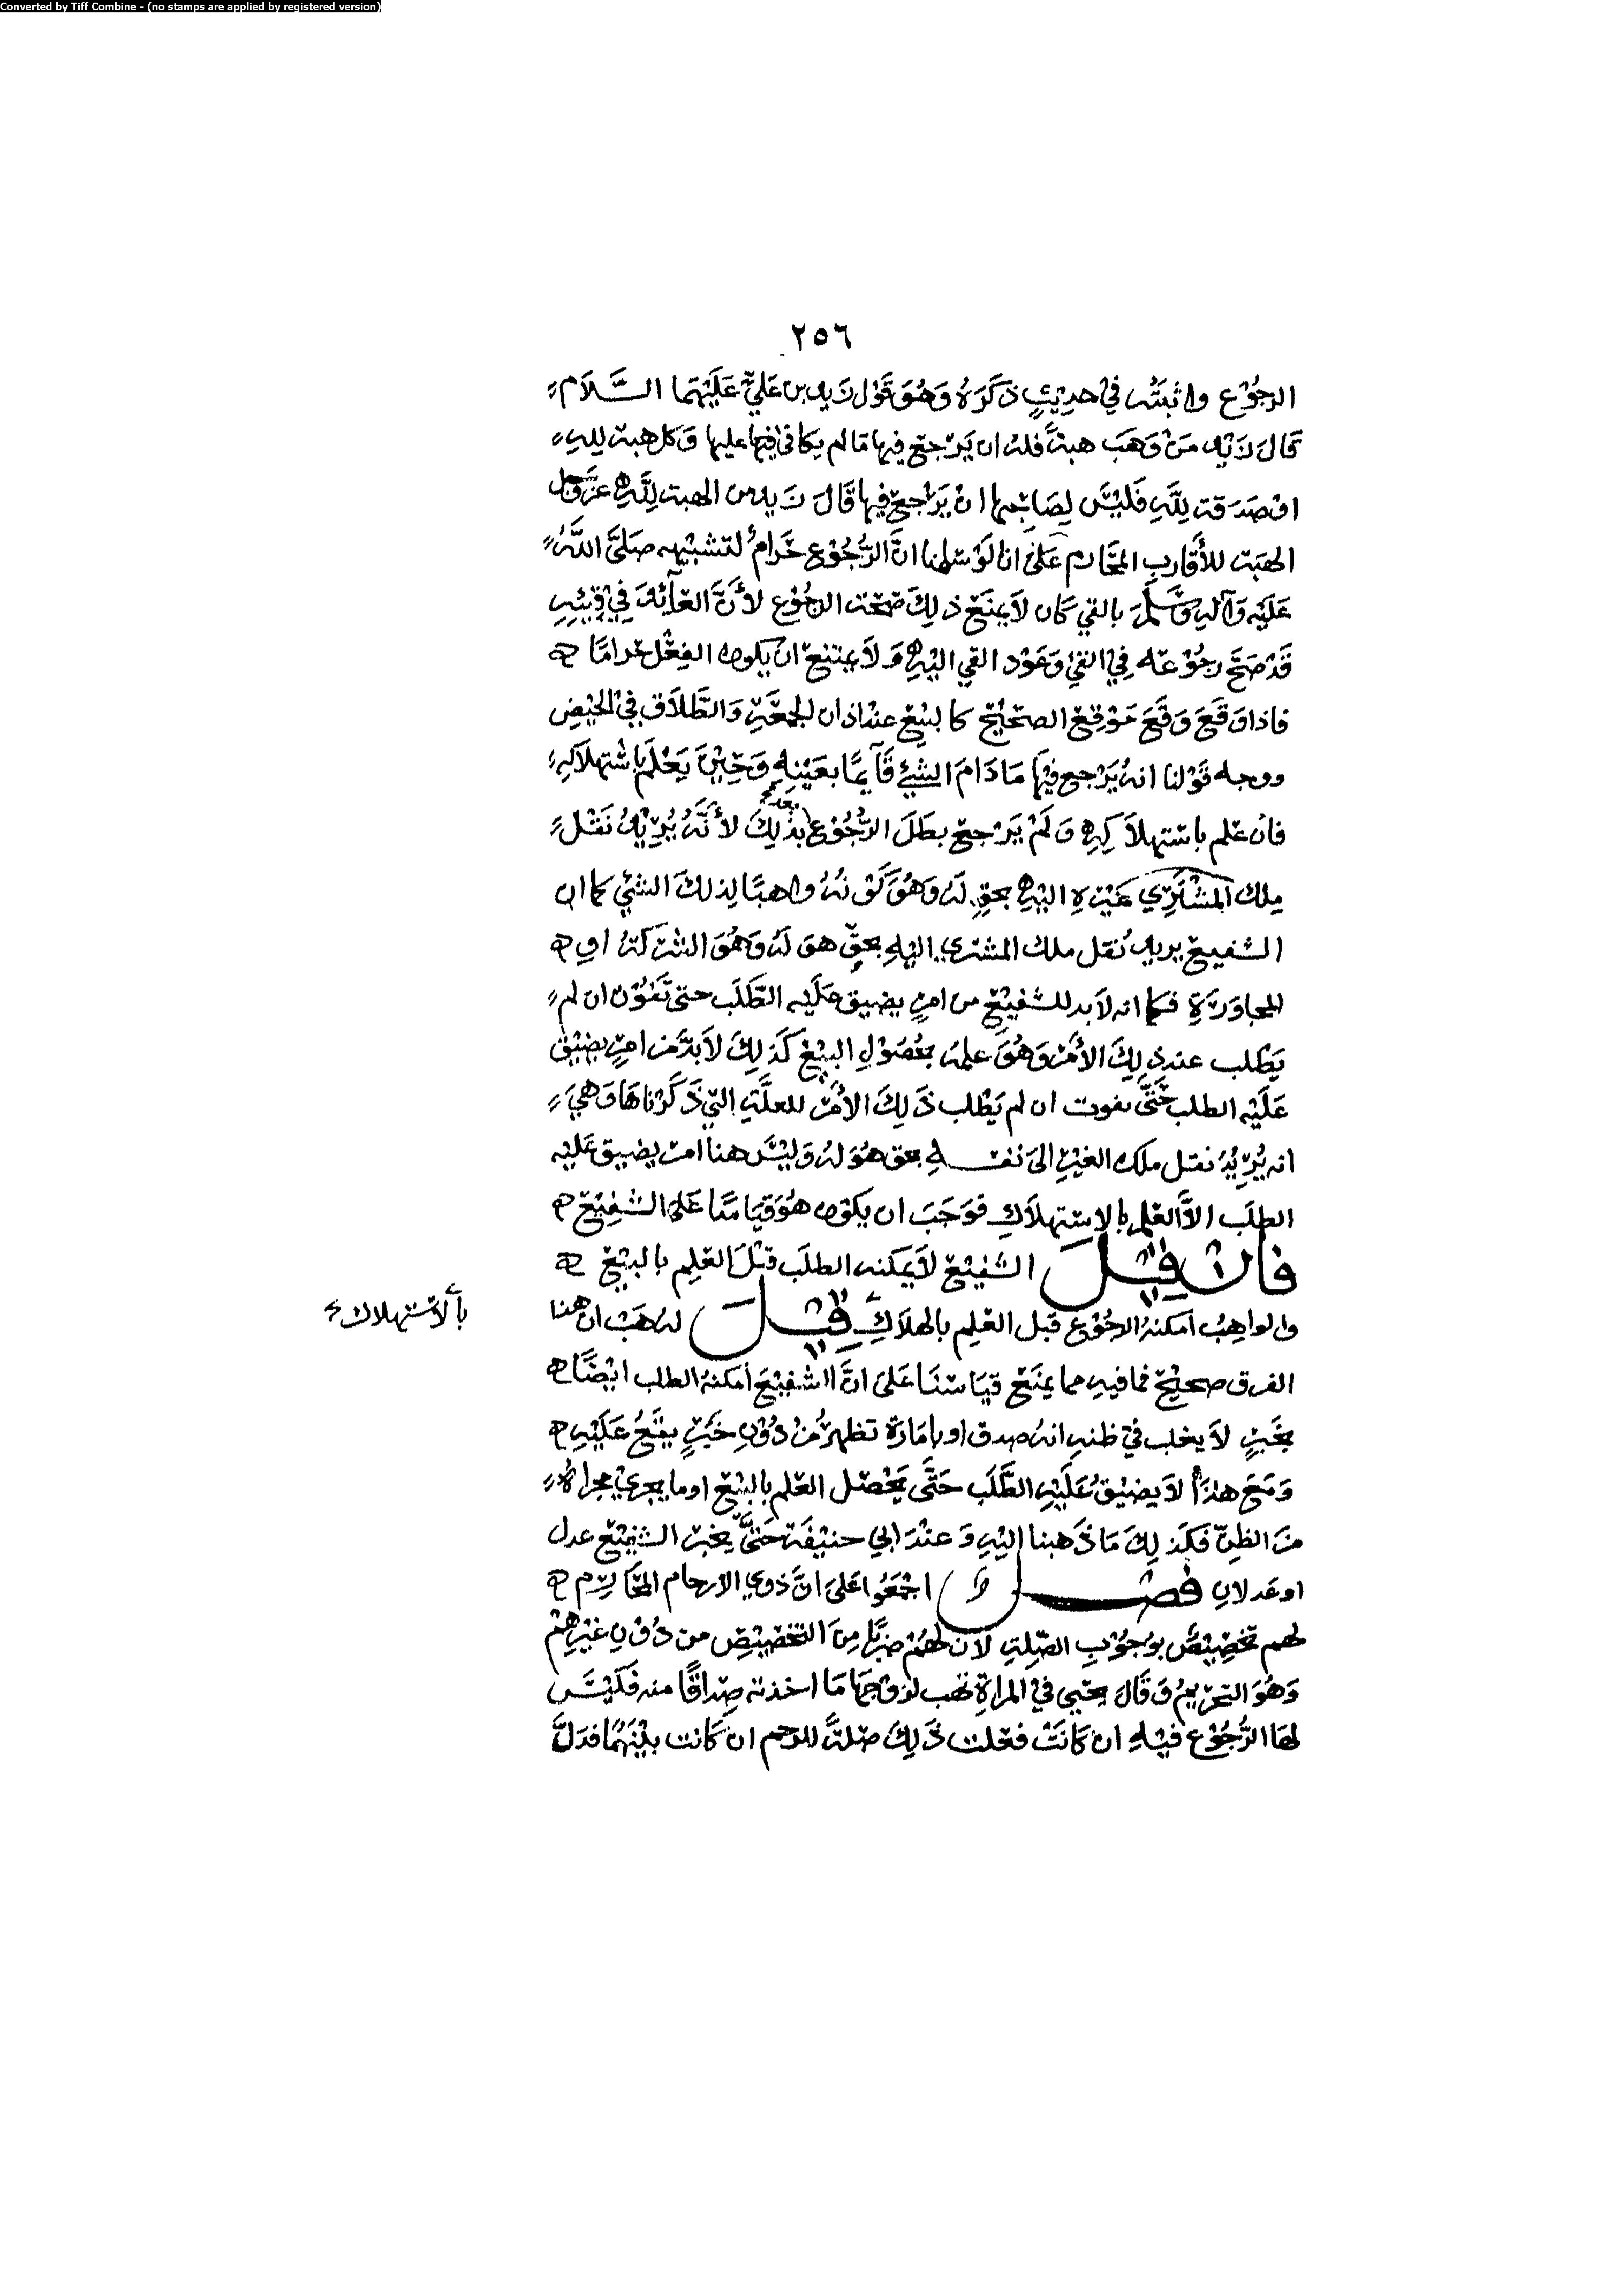 Converted by Tiff Combine - (no stamps are applied by registered version)
٢٥٦
الرجُوْع واثبَتُه في حديثٍ ذكَرَهُ وَهُوَ قَوْل زيد بن عَليّ عَلَيْهِمَا السَّلاَم
قال زيد مَنْ وَهَبَ هبةً فلهُ ان يَرْجع فيها مَا لم يكافئ فيها عليها وَكل هبة لله
او صَدَقة لِلَّهِ فَليْسَ لِصَاحبها انْ يَرْجع فيها قَالَ زيد من الهبة لِلَّهِ عزّ وجل
الهبَة للأَقارب المحَارم عَلى انا لوْ سلمنا انَّ الرُّجُوْع حَرامٌ لتشبيهه صَلَّى اللَّهُ
عَلَيْه وَآله وَسَلَّمَ بالقي كان لاَ يمنع ذلِكَ صحّة الرجُوْع لأَنَّ العَآئدَ في قيئِهِ
قَدْ صَحَّ رجُوْعه في القئ وَعَوْد القي اليْهِ وَلاَ يمتنع ان يكون الفِعْل حَرامًا
فاذا وَقَعَ وَقَعَ مَوْقِعَ الصحيْح كا لبيْع عندَ اذان الجمعَةِ وَالطَّلاَق في الحيْضِ
ووجه قوْلنا انهُ يَرْجع فيْهَا مَا دَامَ الشيْئ قَآئِمًا بعَيْنِهِ وَحِيْنَ يَعْلَم باِسْتهلاَكِهِ
فان عَلم باسْتهلاَكِهِ وَلَمْ يَرْجع بطَلَ الرُّجُوْع بعد ذلِكَ لأَنَّهُ يُرِيْدُ نَقْلَ
مِلك المشْتَرِي غَيْرهِ اليْهِ بحقٍ لهُ وَهُوَ كَوْنُهُ واهبًا لِذلكَ الشيْ كما ان
الشفيع يريد نُقل ملك المشتري اليْهِ بحقٍّ هوَ لهُ وَهُوَ الشركة او
المجاوَرَةِ فكما انه لاَبد للشفيْعِ من امرٍ يضيق عَلَيْه الطَّلَب حتى تَفُوْت ان لم
يَطلب عند ذلِكَ الأَمْر وَهُوَ علمهُ بحُصُوْلِ البيْع كَذلِكَ لاَبدَّ من امرٍ يضيْق
عَلَيْه الطلب حَتَّى يفوت ان لم يَطْلب ذَلِكَ الأَمْر للعلَّةِ التي ذكَرْناهَا وَهيَ
انه يُرِيْدُ نقل ملك الغيْرِ الى نفسهِ بحق هُوَ لهُ وَليْسَ هنا امر يضيق عَليْه
الطلَب الاَّ العلم بالاِسْتهلاَكِ فوَجَبَ ان يكون هُوَ قيَامًا عَلى الشفيْع
فان قيْل الشفيْع لاَ يمكنه الطلَب قبْلَ العلِم بالبيْع
والواهبُ امكنهُ الرجُوْع قبل العلِم بالهلاَكِ قيْلَ لهُ هَبْ انَّ هنا
بالاسْتهلاك
الفرق صحيْح فما فيهِ مما يمنَع قيَاسَنَا عَلى انَّ الشفيْعَ امكنهُ الطلب ايْضًا
بخَبرٍ لاَ يغلب في ظنهِ انهُ صدق او بامَارَة تظهر مُنْ دُوْنِ خَبَرٍ يقَعُ عَلَيْهِ
وَمَعَ هذَا لاَ يضيْقُ عَلَيْهِ الطَّلَب حَتَّى يَحْصل العَلم بالبيْع او ما يجري مجراهُ
منَ الظنِّ فكَذلِكَ مَا ذَهبنا اليْهِ وَعنْدَ ابي حنيْفَة حَتَّى يخبر الشفيْعَ عدل
او عَدلانِ فصْل اجْمَعُوا عَلى انَّ ذوي الارحام المحَارِم
لهم تخصِيْصٌ بوجُوْبِ الصِّلةِ لان لهُمْ ضربًا مِنَ التخصِيْصِ من دُوْنِ غيْرِهمْ
وَهُوَ التحْريْمُ وَقَالَ يحيى في المراةِ تهب لزوْجهَا مَا اخذته صِداقًا منه فَلَيْسَ
لهَا الرُّجُوْع فيْهِ ان كَانَتْ فعَلت ذَلِكَ صلةً للرحم ان كَانت بيْنَهُمَا فدَلَّ